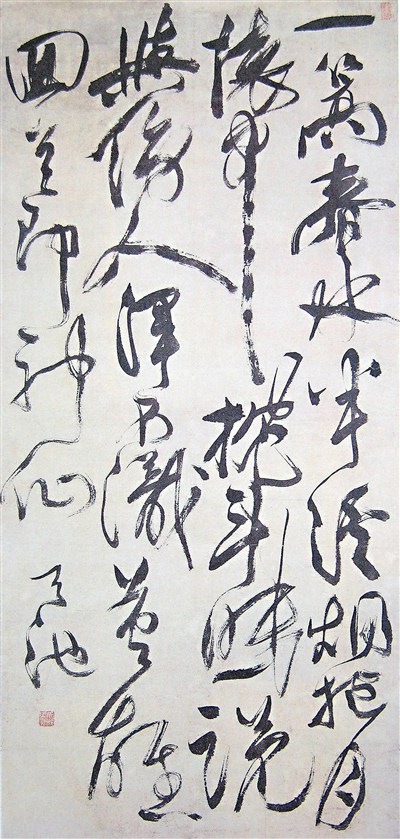 一篙春水半溪烟抱月
懷中枕斗眠說
與傍人渾不識英雄
回首即神仙
天池